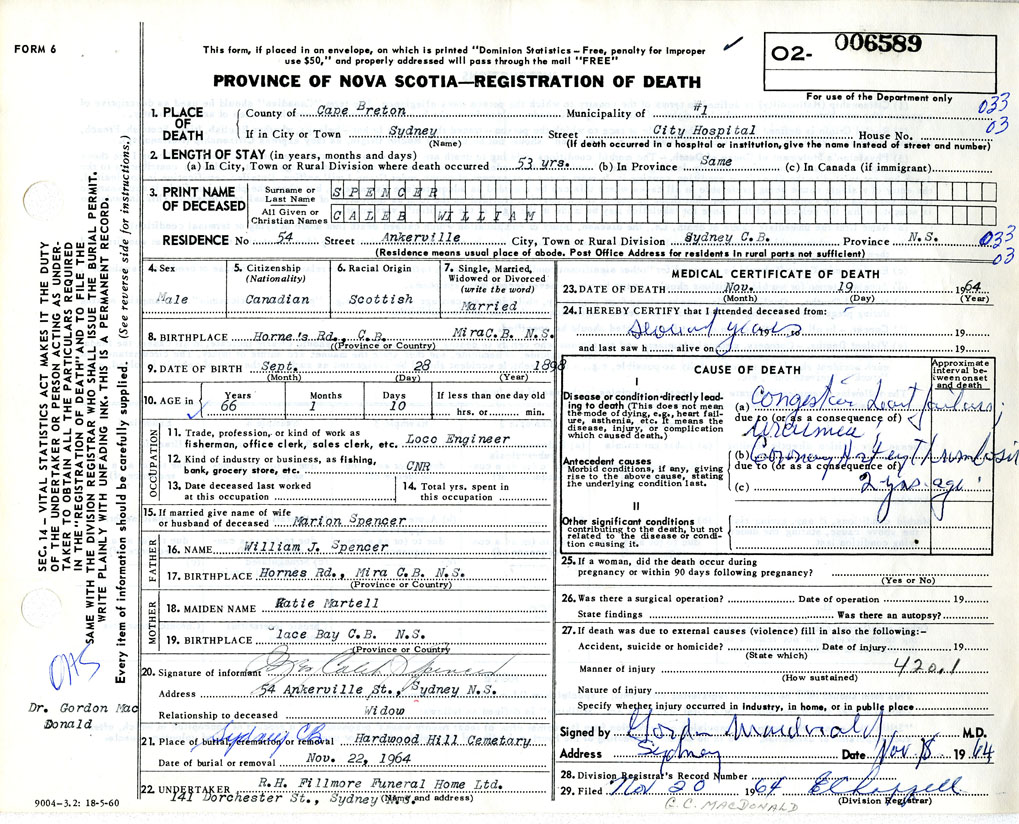 FORM 6
This form, if placed in an envelope, on which is printed "Dominion Statistics – Free, penalty for improper
use $50," and properly addressed will pass through the mail "FREE"
PROVINCE OF NOVA SCOTIA—REGISTRATION OF DEATH
O2- 006589
For use of the Department only
033
03
1. PLACE OF DEATH
County of Cape Breton Municipality of #1
If in City or Town Sydney Street City Hospital House No.
(Name) (If death occurred in a hospital or institution, give the name instead of street and number)
2. LENGTH OF STAY (in years, months and days)
(a) In City, Town or Rural Division where death occurred 53 yrs. (b) In Province Same (c) In Canada (if immigrant)
3. PRINT NAME OF DECEASED
Surname or Last Name SPENCER
All Given or Christian Names CALEB WILLIAM
RESIDENCE No 54 Street Ankerville City, Town or Rural Division Sydney C.B. Province N.S.
033
03
(Residence means usual place of abode. Post Office Address for residents in rural parts not sufficient)
4. Sex
Male
5. Citizenship
(Nationality)
Canadian
6. Racial Origin
Scottish
7. Single, Married,
Widowed or Divorced
(write the word)
Married
8. BIRTHPLACE Horne's Rd., C.B. Mira C.B. N.S.
(Province or Country)
9. DATE OF BIRTH Sept. 28 1898
(Month) (Day) (Year)
10. AGE in
Years Months Days If less than one day old
66 1 10 hrs. or min.
OCCUPATION
11. Trade, profession, or kind of work as
fisherman, office clerk, sales clerk, etc. Loco Engineer
12. Kind of industry or business, as fishing,
bank, grocery store, etc. CNR
13. Date deceased last worked
at this occupation
14. Total yrs. spent in
this occupation
15. If married give name of wife
or husband of deceased Marion Spencer
FATHER
16. NAME William J. Spencer
17. BIRTHPLACE Hornes Rd., Mira C.B. N.S.
(Province or Country)
MOTHER
18. MAIDEN NAME Katie Martell
19. BIRTHPLACE lace Bay C.B. N.S.
(Province or Country)
20. Signature of informant Mrs Caleb Spencer
Address 54 Ankerville St., Sydney N.S.
Relationship to deceased Widow
Sydney CB
21. Place of burial, cremation or removal Hardwood Hill Cemetary
Date of burial or removal Nov. 22, 1964
22. UNDERTAKER R.H. Fillmore Funeral Home Ltd.
141 Dorchester St., Sydney N.S.
(Name and address)
MEDICAL CERTIFICATE OF DEATH
23. DATE OF DEATH Nov. 19 1964
(Month) (Day) (Year)
24. I HEREBY CERTIFY that I attended deceased from:
several years 19
and last saw h alive on 19
CAUSE OF DEATH
Approximate
interval between onset
and death
I
Disease or condition directly leading to death (This does not mean
the mode of dying, e.g., heart failure, asthenia, etc. It means the
disease, injury, or complication
which caused death.)
(a) Congestive heart failure;
due to (or as a consequence of)
uraemia
Antecedent causes
Morbid conditions, if any, giving
rise to the above cause, stating
the underlying condition last.
(b) Coronary Artery Thrombosis
due to (or as a consequence of)
(c) 2 yrs ago
II
Other significant conditions
contributing to the death, but not
related to the disease or condition causing it.
25. If a woman, did the death occur during
pregnancy or within 90 days following pregnancy?
(Yes or No)
26. Was there a surgical operation? Date of operation 19
State findings Was there an autopsy?
27. If death was due to external causes (violence) fill in also the following:–
Accident, suicide or homicide? Date of injury 19
(State which)
Manner of injury 420.1
(How sustained)
Nature of injury
Specify whether injury occurred in industry, in home, or in public place
Signed by Gordon Macdonald M.D.
Address Sydney Date Nov 18 1964
28. Division Registrar's Record Number
29. Filed Nov 20 1964
(Division Registrar)
C. C. MACDONALD
SEC. 14 – VITAL STATISTICS ACT MAKES IT THE DUTY
OF THE UNDERTAKER OR PERSON ACTING AS UNDERTAKER TO OBTAIN ALL THE PARTICULARS REQUIRED
IN THE "REGISTRATION OF DEATH" AND TO FILE THE
SAME WITH THE DIVISION REGISTRAR WHO SHALL ISSUE THE BURIAL PERMIT.
WRITE PLAINLY WITH UNFADING INK. THIS IS A PERMANENT RECORD.
Every item of information should be carefully supplied. (See reverse side for instructions.)
Dr. Gordon Mac
Donald
9004-3.2: 18-5-60